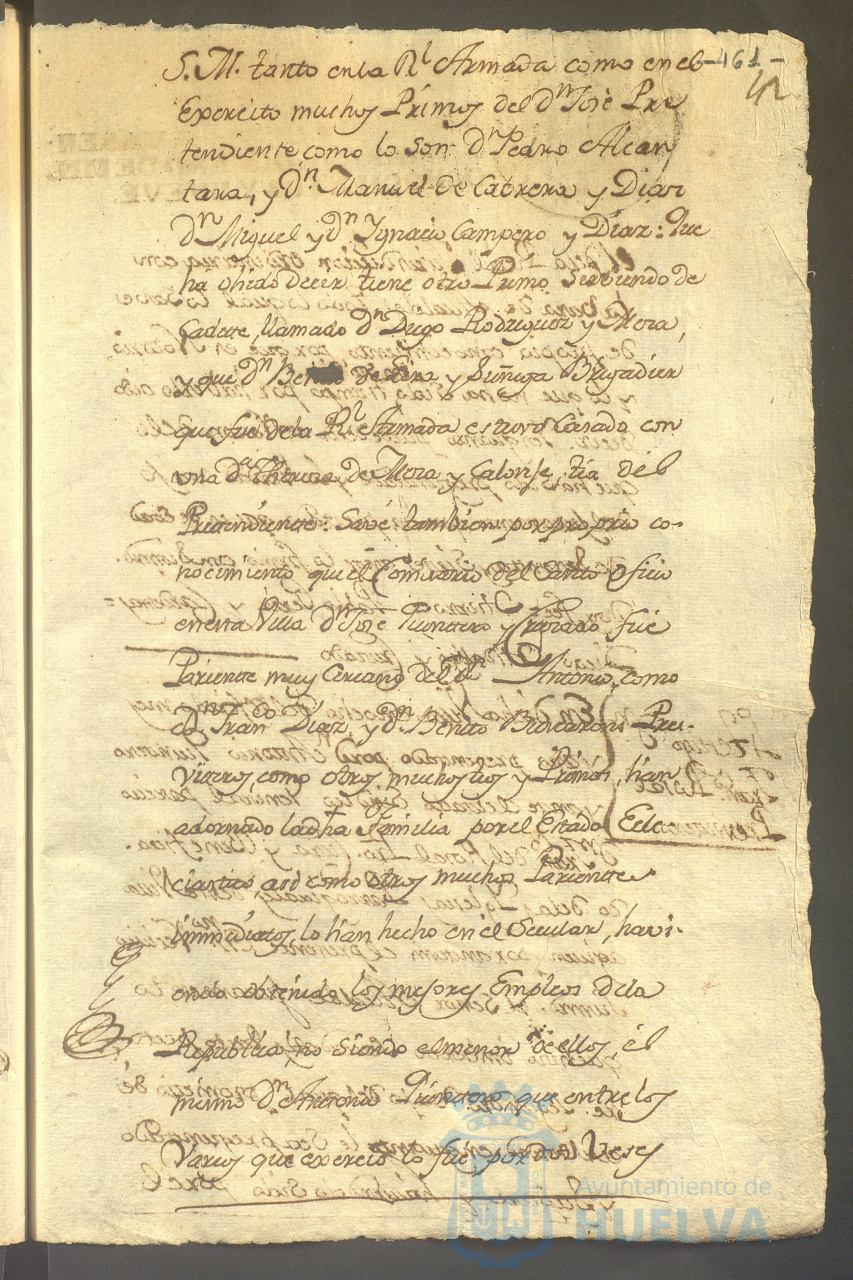 -461-
S. M. tanto en la Rl Armada como en el
Exercito muchos Primos del dn Josè Pre
tendiente como lo son dn Pedro Alcan
tara, y dn. Manuel de Cabrera y Diaz
dn Miguel y dn Ignacio Campero y Diaz: Que
ha ohido decir tiene otro Primo Sirviendo de
Cadete, llamado dn Diego Rodriguez y Mora,
y que dn de y Suñiga Brigadier
que fue de la Rl Armada estuvo Casado con
una da Theresa de Mora y Calonje tia del
Pretendiente: Savé tambien por proprio co-
nocimiento que el Comisario del Santo Oficio
en esta Villa dn José Quintero y fué
Pariente muy Cercano del dn Antonio, como
dn Fran.co Diaz, y dn Benito Pres-
viteros, como otros muchos tios y Primos, han
adornado la dha Familia por el Estado Ecle
ciastico asi como otros muchos Parientes
immediatos lo han hecho en el Secular, havi-
endo obtenido los mejores Empleos de la
Republica no siendo el menor de ellos, él
mismo dn Antonio Quintero que entre los
Varios que exerció lo fué por dos Veses
Ayuntamiento de
HUELVA